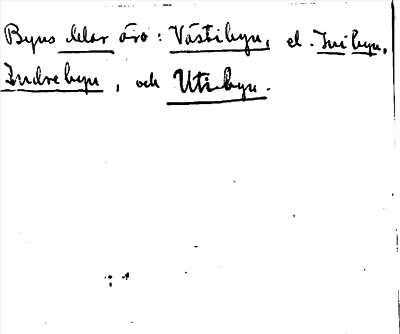 Byns delar äro: Västibyn, el. Inibyn,
Indrebyn, och Utibyn.